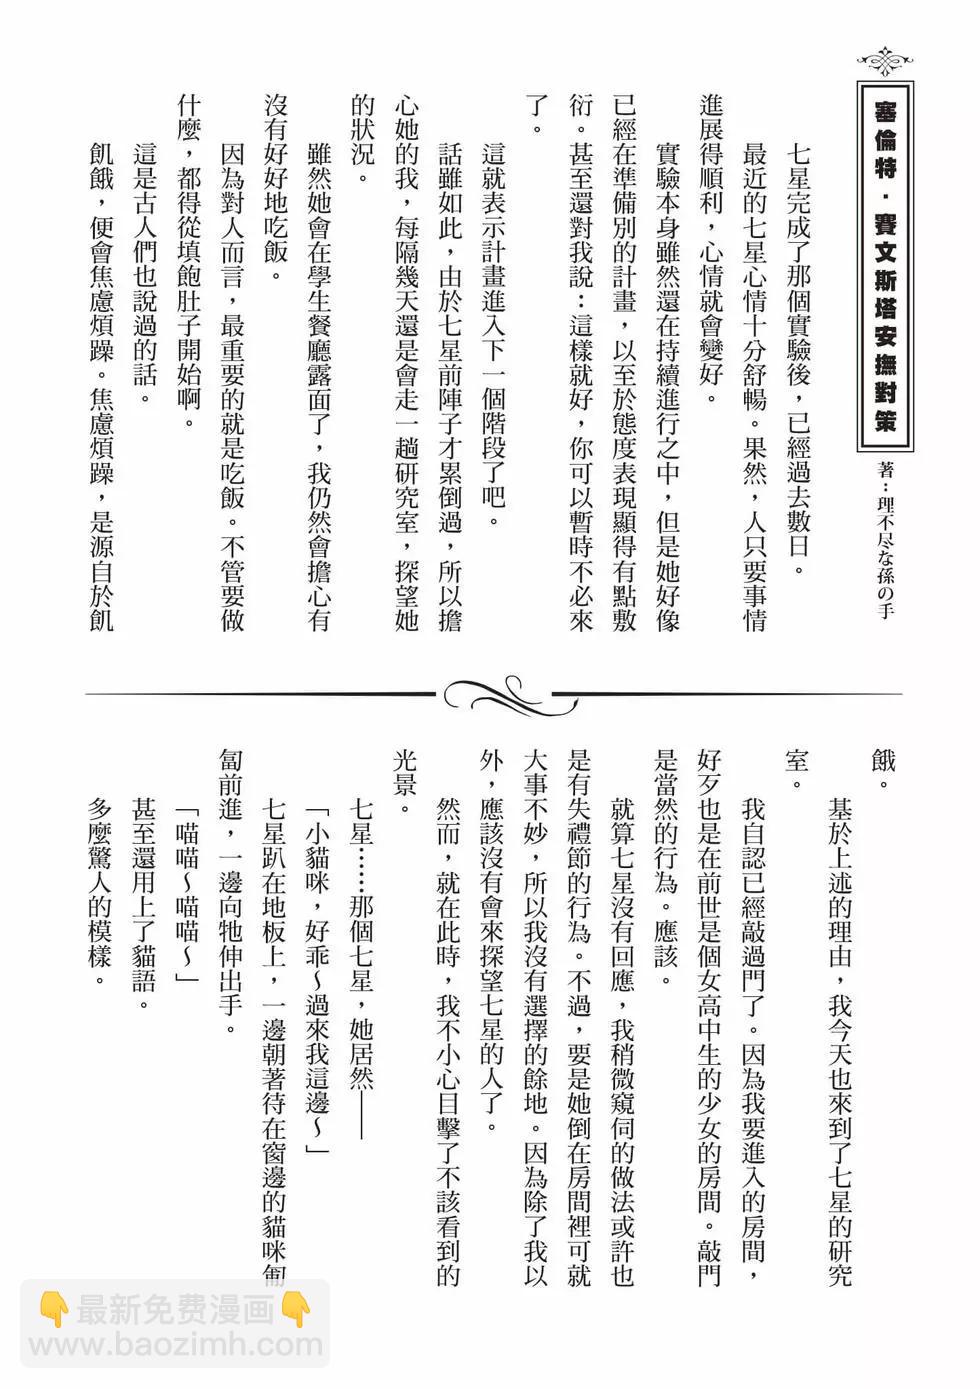 塞倫特・賽文斯塔安撫對策
著：理不尽な孫の手
七星完成了那個實驗後，已經過去數日。
最近的七星心情十分舒暢。果然，人只要事情
進展得順利，心情就會變好。
實驗本身雖然還在持續進行之中，但是她好像
已經在準備別的計畫，以至於態度表現顯得有點敷
衍。甚至還對我說：這樣就好，你可以暫時不必來
了。
這就表示計畫進入下一個階段了吧。
話雖如此，由於七星前陣子才累倒過，所以擔
心她的我，每隔幾天還是會走一趟研究室，探望她
的狀況。
雖然她會在學生餐廳露面了，我仍然會擔心有
沒有好好地吃飯。
因為對人而言，最重要的就是吃飯。不管要做
什麼，都得從填飽肚子開始啊。
這是古人們也說過的話。
飢餓，便會焦慮煩躁。焦慮煩躁，是源自於飢
餓。
基於上述的理由，我今天也來到了七星的研究
室。
我自認已經敲過門了。因為我要進入的房間，
好歹也是在前世是個女高中生的少女的房間。敲門
是當然的行為。應該。
就算七星沒有回應，我稍微窺伺的做法或許也
是有失禮節的行為。不過，要是她倒在房間裡可就
大事不妙，所以我沒有選擇的餘地。因為除了我以
外，應該沒有會來探望七星的人了。
然而，就在此時，我不小心目擊了不該看到的
光景。
七星……那個七星，她居然——
「小貓咪，好乖～過來我這邊～」
七星趴在地板上，一邊朝著待在窗邊的貓咪匍
匐前進，一邊向牠伸出手。
「喵喵～喵喵～」
甚至還用上了貓語。
多麼驚人的模樣。
👇最新免费漫画👇
www.baozimh.com